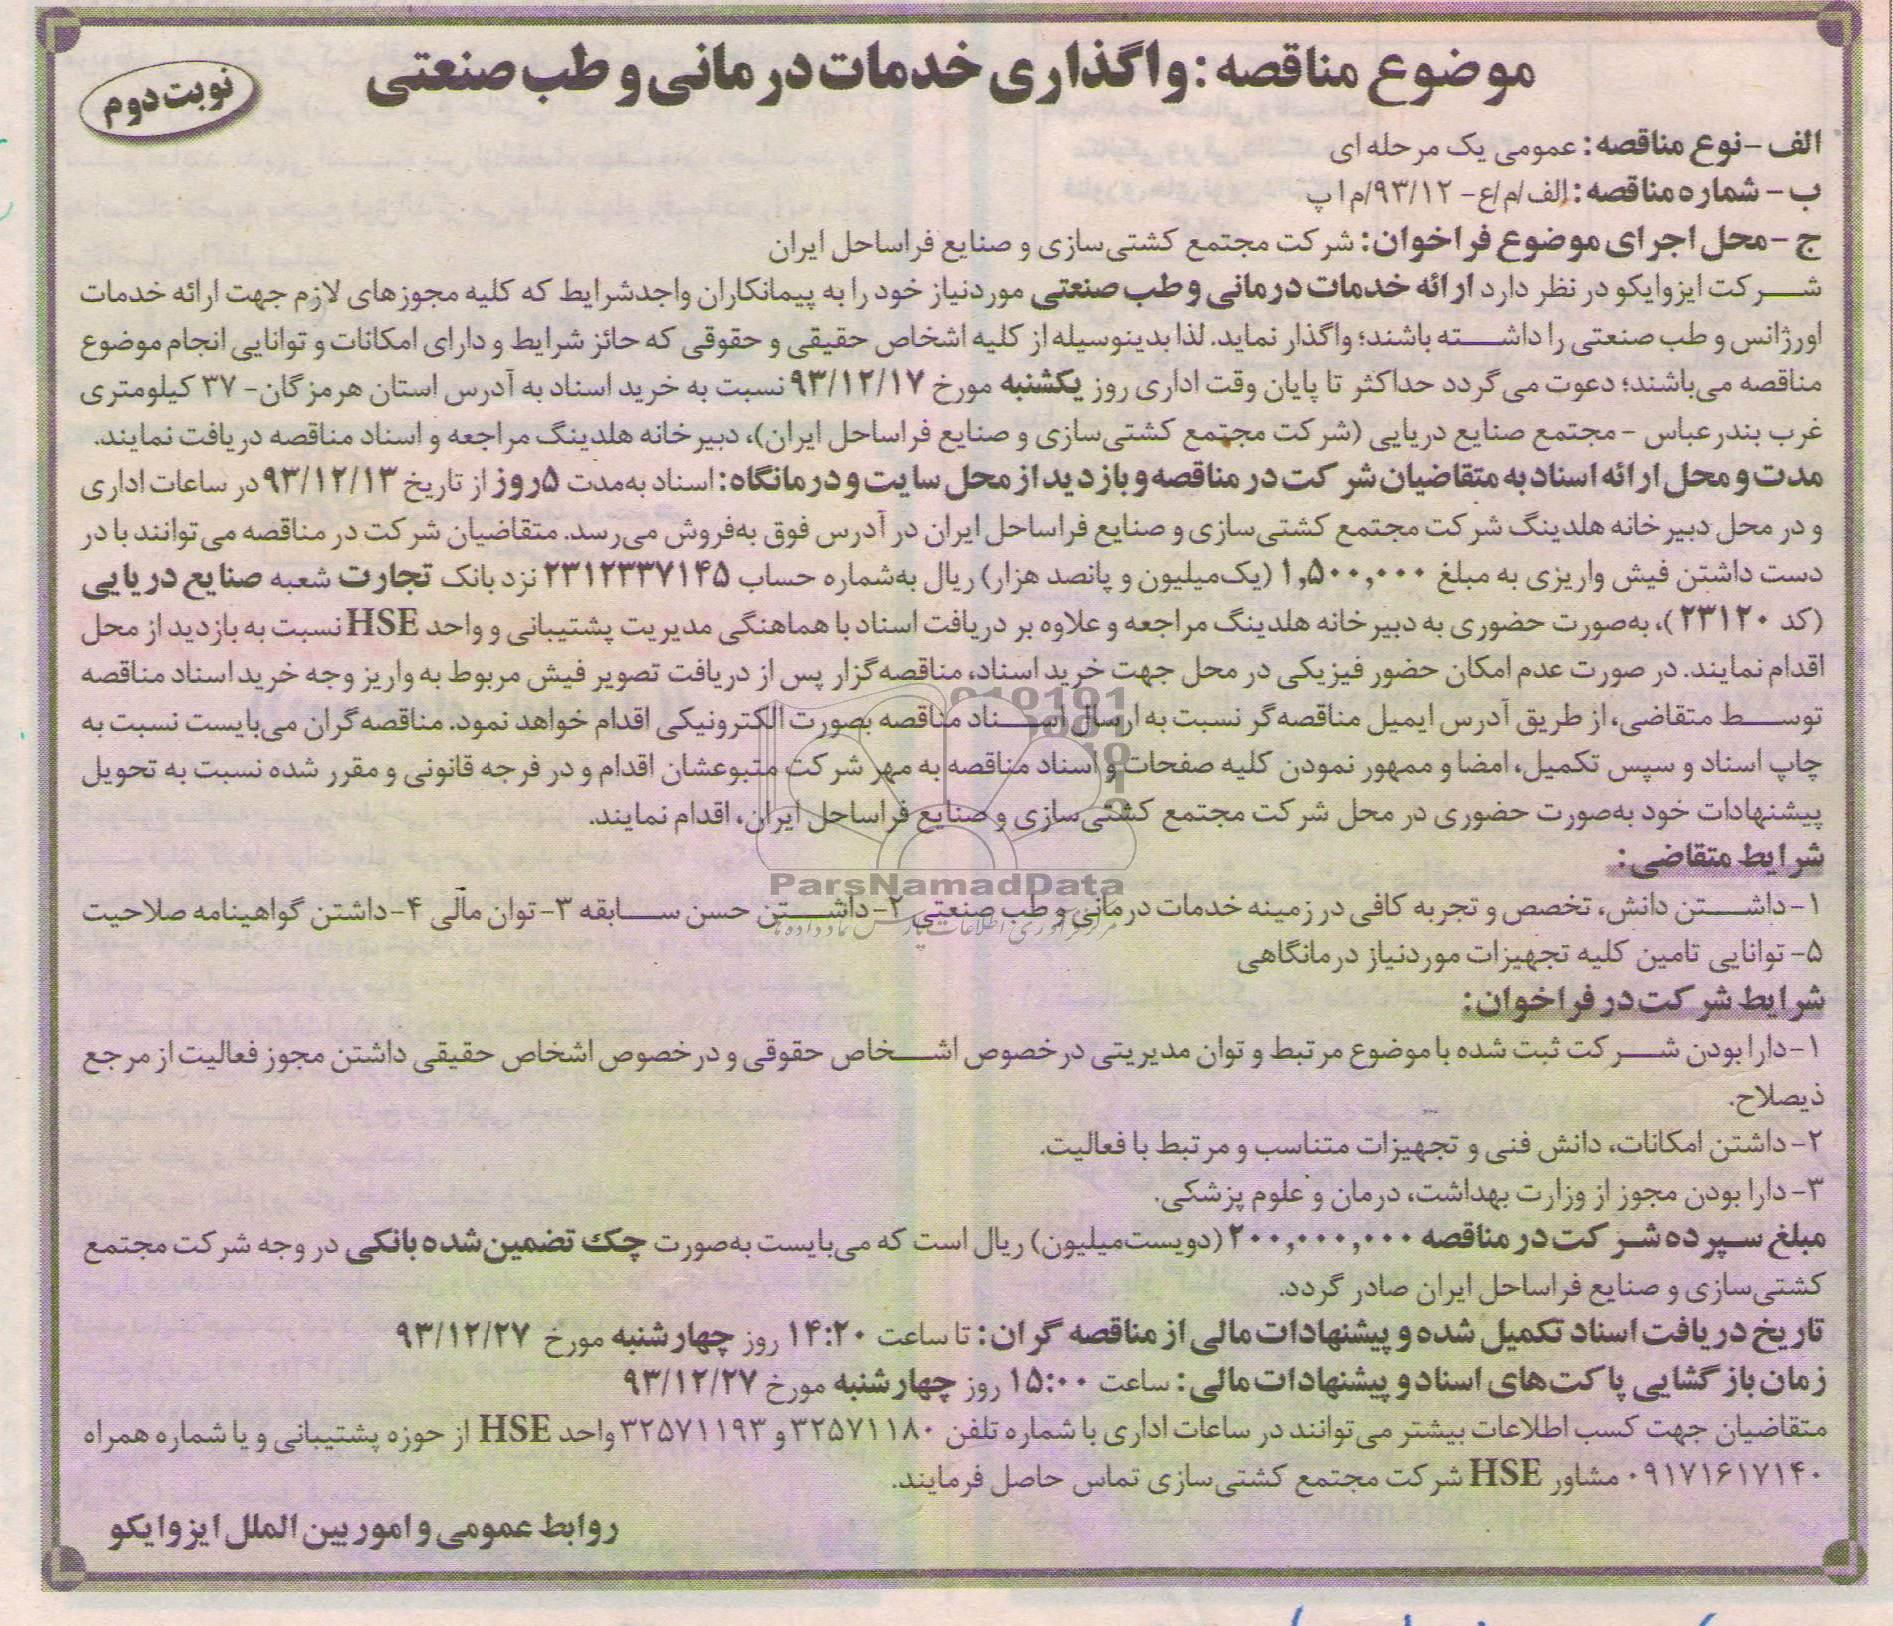 موضوع مناقصه: واگذاری خدمات درمانی و طب صنعتی
نوبت دوم
الف -نوع مناقصه: عمومی یک مرحله ای
ب - شماره مناقصه: الف/م/ع- ۹۳/۱۲/م ا پ
ج -محل اجرای موضوع فراخوان: شرکت مجتمع کشتی‌سازی و صنایع فراساحل ایران
شرکت ایزوایکو در نظر دارد ارائه خدمات درمانی و طب صنعتی موردنیاز خود را به پیمانکاران واجدشرایط که کلیه مجوزهای لازم جهت ارائه خدمات
اورژانس و طب صنعتی را داشته باشند؛ واگذار نماید. لذا بدینوسیله از کلیه اشخاص حقیقی و حقوقی که حائز شرایط و دارای امکانات و توانایی انجام موضوع
مناقصه می‌باشند؛ دعوت می‌گردد حداکثر تا پایان وقت اداری روز یکشنبه مورخ ۹۳/۱۲/۱۷ نسبت به خرید اسناد به آدرس استان هرمزگان- ۳۷ کیلومتری
غرب بندرعباس - مجتمع صنایع دریایی (شرکت مجتمع کشتی‌سازی و صنایع فراساحل ایران)، دبیرخانه هلدینگ مراجعه و اسناد مناقصه دریافت نمایند.
مدت و محل ارائه اسناد به متقاضیان شرکت در مناقصه و بازدید از محل سایت و درمانگاه: اسناد به‌مدت ۵ روز از تاریخ ۹۳/۱۲/۱۳ در ساعات اداری
و در محل دبیرخانه هلدینگ شرکت مجتمع کشتی‌سازی و صنایع فراساحل ایران در آدرس فوق به‌فروش می‌رسد. متقاضیان شرکت در مناقصه می‌توانند با در
دست داشتن فیش واریزی به مبلغ ۱,۵۰۰,۰۰۰ (یک‌میلیون و پانصد هزار) ریال به‌شماره حساب ۲۳۱۲۳۳۷۱۴۵ نزد بانک تجارت شعبه صنایع دریایی
(کد ۲۳۱۲۰)، به‌صورت حضوری به دبیرخانه هلدینگ مراجعه و علاوه بر دریافت اسناد با هماهنگی مدیریت پشتیبانی و واحد HSE نسبت به بازدید از محل
اقدام نمایند. در صورت عدم امکان حضور فیزیکی در محل جهت خرید اسناد، مناقصه‌گزار پس از دریافت تصویر فیش مربوط به واریز وجه خرید اسناد مناقصه
توسط متقاضی، از طریق آدرس ایمیل مناقصه‌گر نسبت به ارسال اسناد مناقصه بصورت الکترونیکی اقدام خواهد نمود. مناقصه‌گران می‌بایست نسبت به
چاپ اسناد و سپس تکمیل، امضا و ممهور نمودن کلیه صفحات و اسناد مناقصه به مهر شرکت متبوعشان اقدام و در فرجه قانونی و مقرر شده نسبت به تحویل
پیشنهادات خود به‌صورت حضوری در محل شرکت مجتمع کشتی‌سازی و صنایع فراساحل ایران، اقدام نمایند.
شرایط متقاضی:
ParsNamadData
۱- داشتن دانش، تخصص و تجربه کافی در زمینه خدمات درمانی و طب صنعتی ۲- داشتن حسن سابقه ۳- توان مالی ۴- داشتن گواهینامه صلاحیت
۵- توانایی تامین کلیه تجهیزات موردنیاز درمانگاهی
شرایط شرکت در فراخوان:
۱-دارا بودن شرکت ثبت شده با موضوع مرتبط و توان مدیریتی درخصوص اشخاص حقوقی و درخصوص اشخاص حقیقی داشتن مجوز فعالیت از مرجع
ذیصلاح.
۲- داشتن امکانات، دانش فنی و تجهیزات متناسب و مرتبط با فعالیت.
۳- دارا بودن مجوز از وزارت بهداشت، درمان و علوم پزشکی.
مبلغ سپرده شرکت در مناقصه ۲۰۰,۰۰۰,۰۰۰ (دویست‌میلیون) ریال است که می‌بایست به‌صورت چک تضمین شده بانکی در وجه شرکت مجتمع
کشتی‌سازی و صنایع فراساحل ایران صادر گردد.
تاریخ دریافت اسناد تکمیل شده و پیشنهادات مالی از مناقصه گران: تا ساعت ۱۴:۲۰ روز چهارشنبه مورخ ۹۳/۱۲/۲۷
زمان بازگشایی پاکت‌های اسناد و پیشنهادات مالی: ساعت ۱۵:۰۰ روز چهارشنبه مورخ ۹۳/۱۲/۲۷
متقاضیان جهت کسب اطلاعات بیشتر می‌توانند در ساعات اداری با شماره تلفن ۳۲۵۷۱۱۸۰ و ۳۲۵۷۱۱۹۳ واحد HSE از حوزه پشتیبانی و یا شماره همراه
۰۹۱۷۱۶۱۷۱۴۰ مشاور HSE شرکت مجتمع کشتی‌سازی تماس حاصل فرمایند.
روابط عمومی و امور بین الملل ایزوایکو